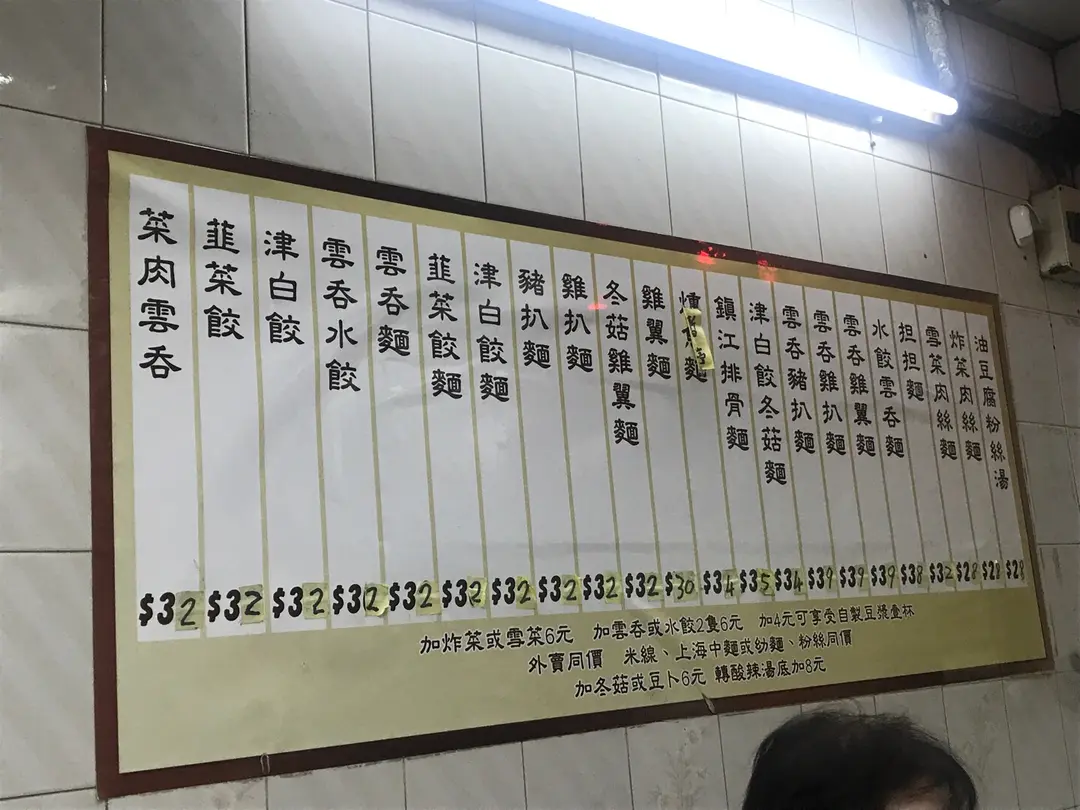 油豆腐粉絲湯 $28
炸菜肉絲麵 $28
雪菜肉絲麵 $28
担担麵 $32
水餃雲呑麵 $38
雲呑雞翼麵 $39
雲呑雞扒麵 $39
雲呑豬扒麵 $39
津白餃冬菇麵 $34
鎮江排骨麵 $35
燻麵 $34
雞翼麵 $30
冬菇雞翼麵 $32
雞扒麵 $32
豬扒麵 $32
津白餃麵 $32
韮菜餃麵 $32
雲呑麵 $32
雲呑水餃 $32
津白餃 $32
韮菜餃 $32
菜肉雲呑 $32
加炸菜或雪菜6元 加雲呑或水餃2隻6元 加4元可享受自製豆漿壹杯
外賣同價 米線、上海中麵或幼麵、粉絲同價
加冬菇或豆卜6元 轉酸辣湯底加8元